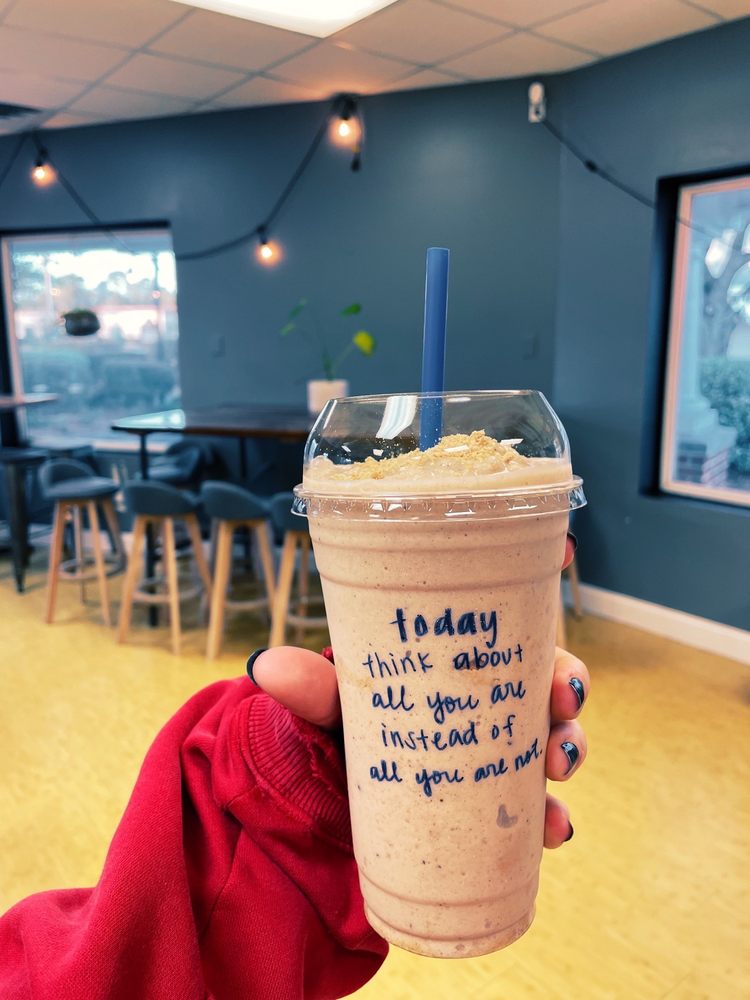 today
think about
all you are
instead of
all you are not.